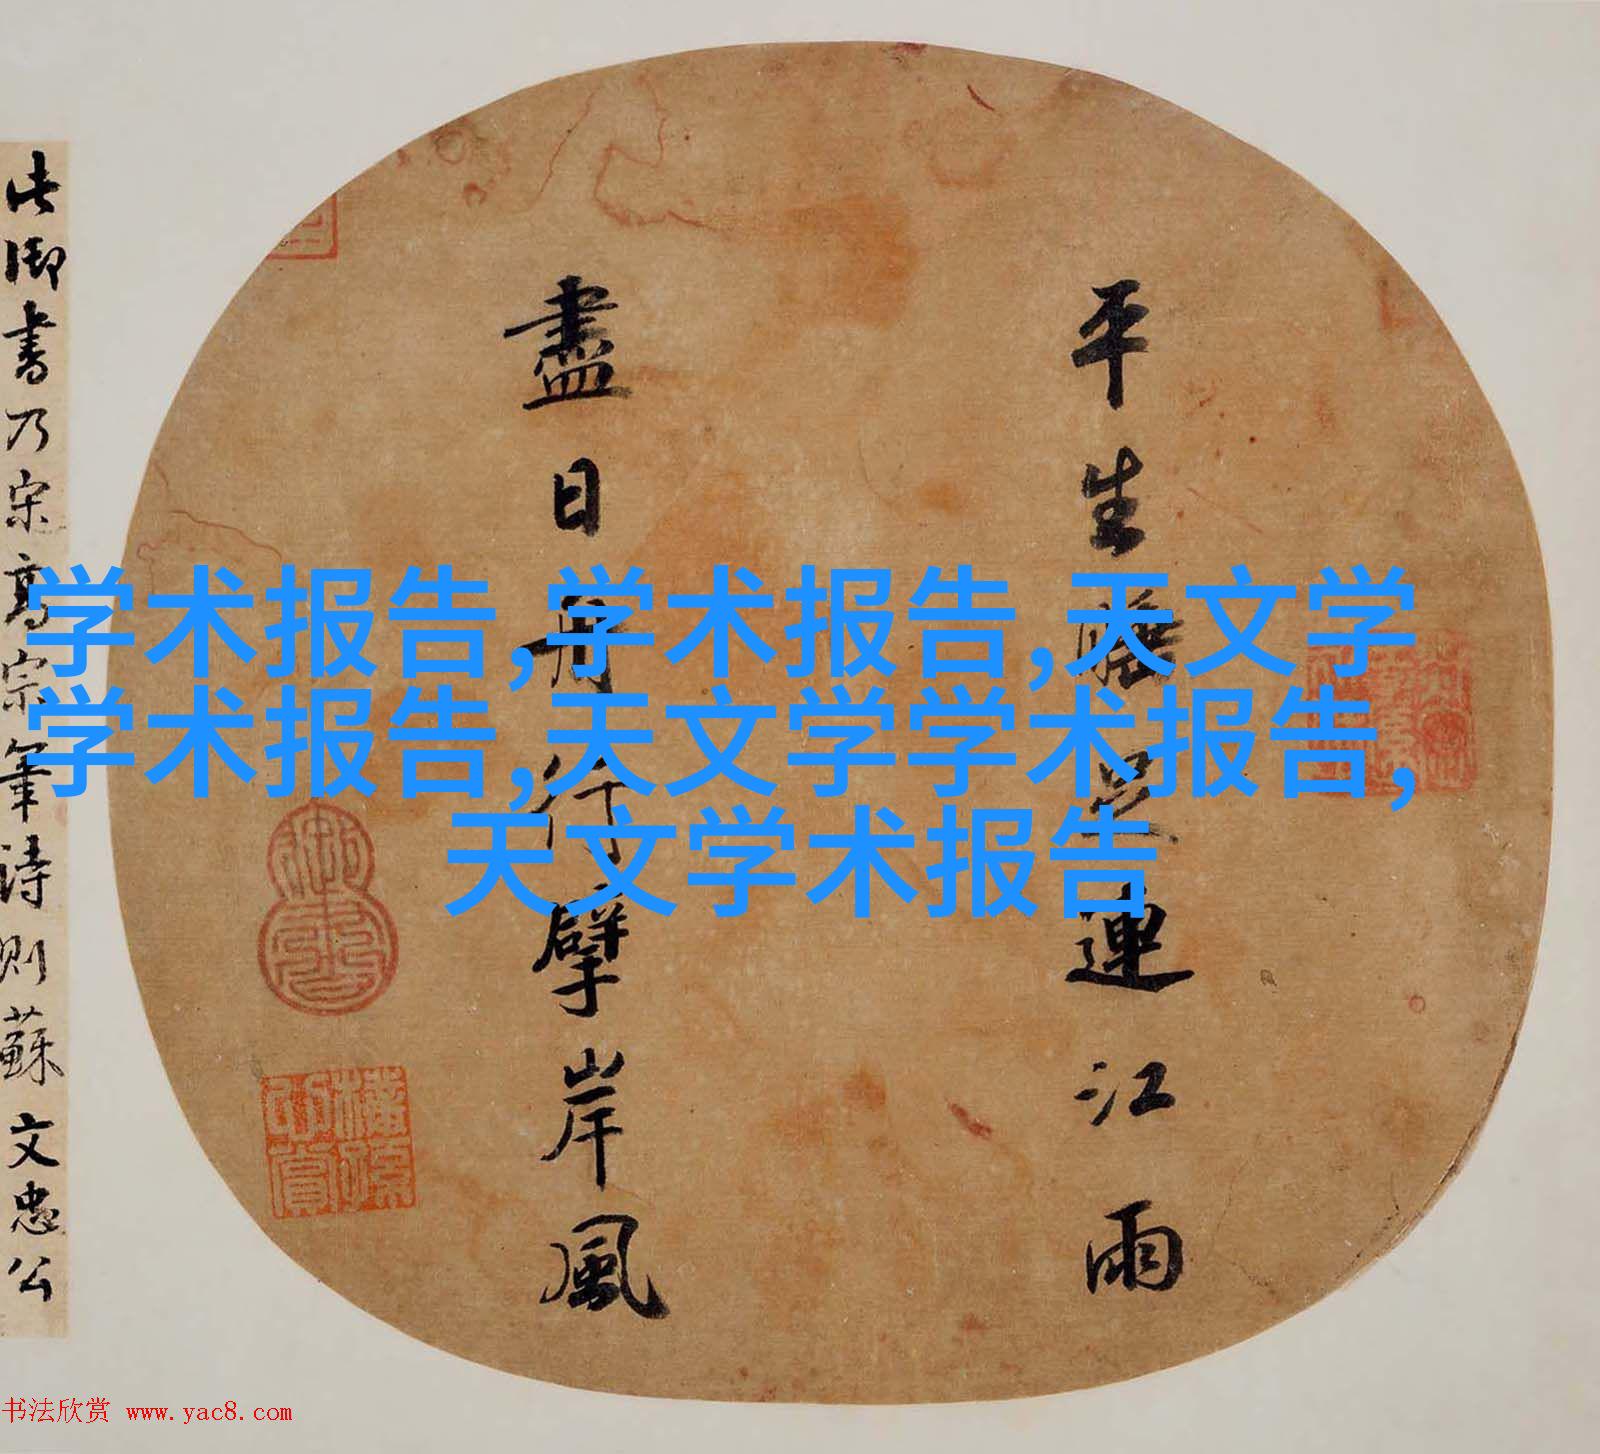 平生睡足連江雨
盡日舟行擘岸風
此御書乃宋高宗筆詩則蘇文忠公
学术报告,学术报告,天文学
学术报告,天文学学术报告,
天文学术报告
书法欣赏 www.yac8.com